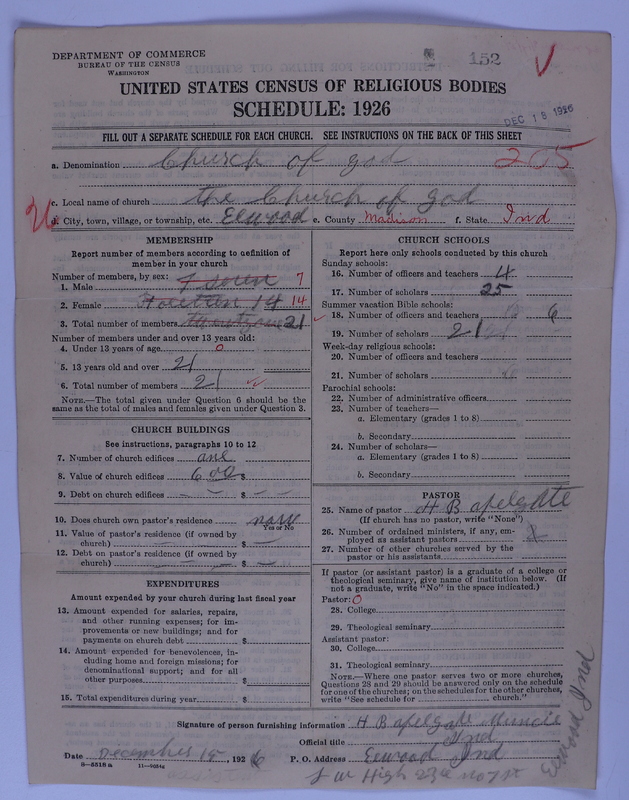 DEPARTMENT OF COMMERCE
BUREAU OF THE CENSUS
WASHINGTON
152
UNITED STATES CENSUS OF RELIGIOUS BODIES
SCHEDULE: 1926
DEC 18 1926
FILL OUT A SEPARATE SCHEDULE FOR EACH CHURCH. SEE INSTRUCTIONS ON THE BACK OF THIS SHEET
a. Denomination Church of god 205
c. Local name of church the Church of god
d. City, town, village, or township, etc. Elwood e. County Madison f. State Ind
MEMBERSHIP
Report number of members according to definition of
member in your church
Number of members, by sex:
1. Male 7
2. Female Fourteen 14 14
3. Total number of members 21
Number of members under and over 13 years old:
4. Under 13 years of age 0
5. 13 years old and over 21
6. Total number of members 21
NOTE.—The total given under Question 6 should be
same as the total of males and females given under Question 3.
CHURCH BUILDINGS
See instructions, paragraphs 10 to 12
7. Number of church edifices one
8. Value of church edifices 600 $
9. Debt on church edifices $
10. Does church own pastor's residence none
Yes or No
11. Value of pastor's residence (if owned by
church) $
12. Debt on pastor's residence (if owned by
church) $
EXPENDITURES
Amount expended by your church during last fiscal year
13. Amount expended for salaries, repairs,
and other running expenses; for im-
provements or new buildings; and for
payments on church debt $
14. Amount expended for benevolences, in-
cluding home and foreign missions; for
denominational support; and for all
other purposes $
15. Total expenditures during year $
CHURCH SCHOOLS
Report here only schools conducted by this church
Sunday schools:
16. Number of officers and teachers 4
17. Number of scholars 25
Summer vacation Bible schools:
18. Number of officers and teachers 6
19. Number of scholars 21
Week-day religious schools:
20. Number of officers and teachers
21. Number of scholars
Parochial schools:
22. Number of administrative officers
23. Number of teachers—
a. Elementary (grades 1 to 8)
b. Secondary
24. Number of scholars—
a. Elementary (grades 1 to 8)
b. Secondary
PASTOR
25. Name of pastor H B apelgate
(If church has no pastor, write "None")
26. Number of ordained ministers, if any, em-
ployed as assistant pastors
27. Number of other churches served by the
pastor or his assistants
If pastor (or assistant pastor) is a graduate of a college or
theological seminary, give name of institution below. (If
not a graduate, write "No" in the space indicated.)
Pastor: 0
28. College
29. Theological seminary
Assistant pastor:
30. College
31. Theological seminary
NOTE.—Where one pastor serves two or more churches,
Questions 28 and 29 should be answered only on the schedule
for one of the churches; on the schedules for the other churches,
write "See schedule for church."
Signature of person furnishing information H B apelgate Muncie
Official title Ind
Date December 15, 1926 P. O. Address Elwood Ind
8-5518a 11-9034a
Elwood Ind